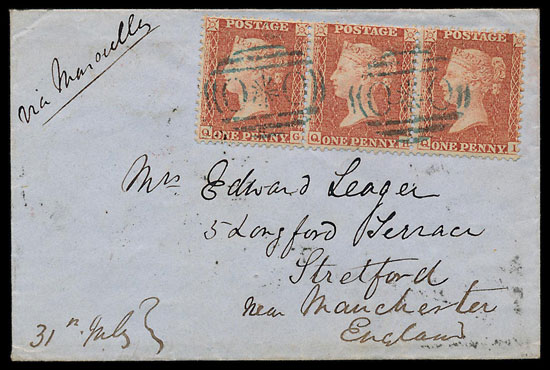 via Marseilles
POSTAGE POSTAGE POSTAGE
Q ONE PENNY G Q ONE PENNY H Q ONE PENNY I
Mrs Edward Leager
5 Longford Terrace
Stretford
near Manchester
England
31st July